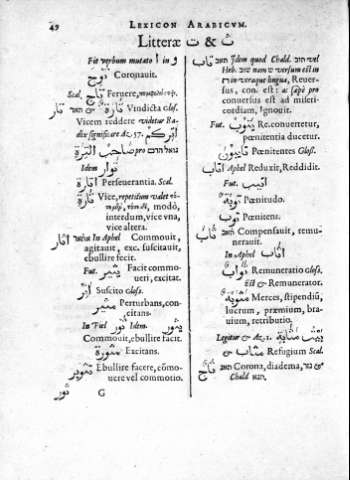 49 LEXICON ARABICUM.
Litteræ ت & ث
Fit verbum mutato ا in و
تَوَّج Coronauit.
Scal. تاج Feruere,
تار & تارة Vindicta Glos.
Vicem reddere videtur Ra-
dix significare Ac. 57.
pro صاحب التارة
Idem توار
Perseuerantia. Scal.
تارة Vice, repetitum valet
modò,
interdum, vice vna,
vice altera.
اثار In Aphel Commouit,
agitauit, exc. suscitauit,
ebullire fecit.
Fut. يثير Facit commo-
ueri, excitat.
اثير Suscito Glos.
مثير Perturbans, con-
citans.
In Fiel ثور Idem. يثور
Commouit, ebullire facit.
مثورة Excitans.
تثوير Ebullire facere, cõmo-
uere vel commotio.
G ثور
تاب תוב Idem quod Chald. תוב vel
Heb. שוב nam ש versum est in
ת in veraque lingua, Reuer-
sus, con. est: ac sæpè pro
conuersus est ad miseri-
cordiam, Ignouit.
Fut. يتوب Re. conuertetur,
pœnitentia ducetur.
تايبون Pœnitentes Glos.
اتاب Aphel Reduxit, Reddidit.
Fut. اتيب
توبة Pœnitudo.
توب Pœnitens.
ثاب תוב Compensauit, remu-
nerauit.
In Aphel اثاب
ثواب Remuneratio Glos.
Est & Remunerator.
مثوبة Merces, stipendiũ,
lucrum, præmium, bra-
uium, retributio.
Legitur & Ac. 2.
مثاب & Refugium Scal.
تاج תאג Corona, diadema,
Chald. תגא